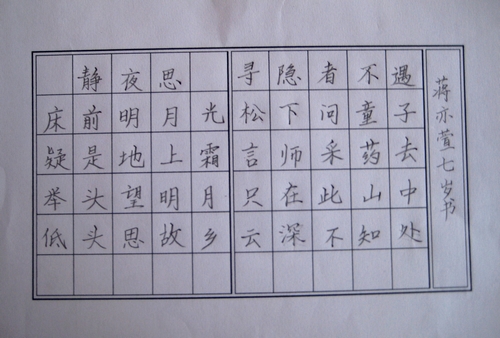 静夜思
床前明月光
疑是地上霜
举头望明月
低头思故乡
寻隐者不遇
松下问童子
言师采药去
只在此山中
云深不知处
蒋亦萱七岁书